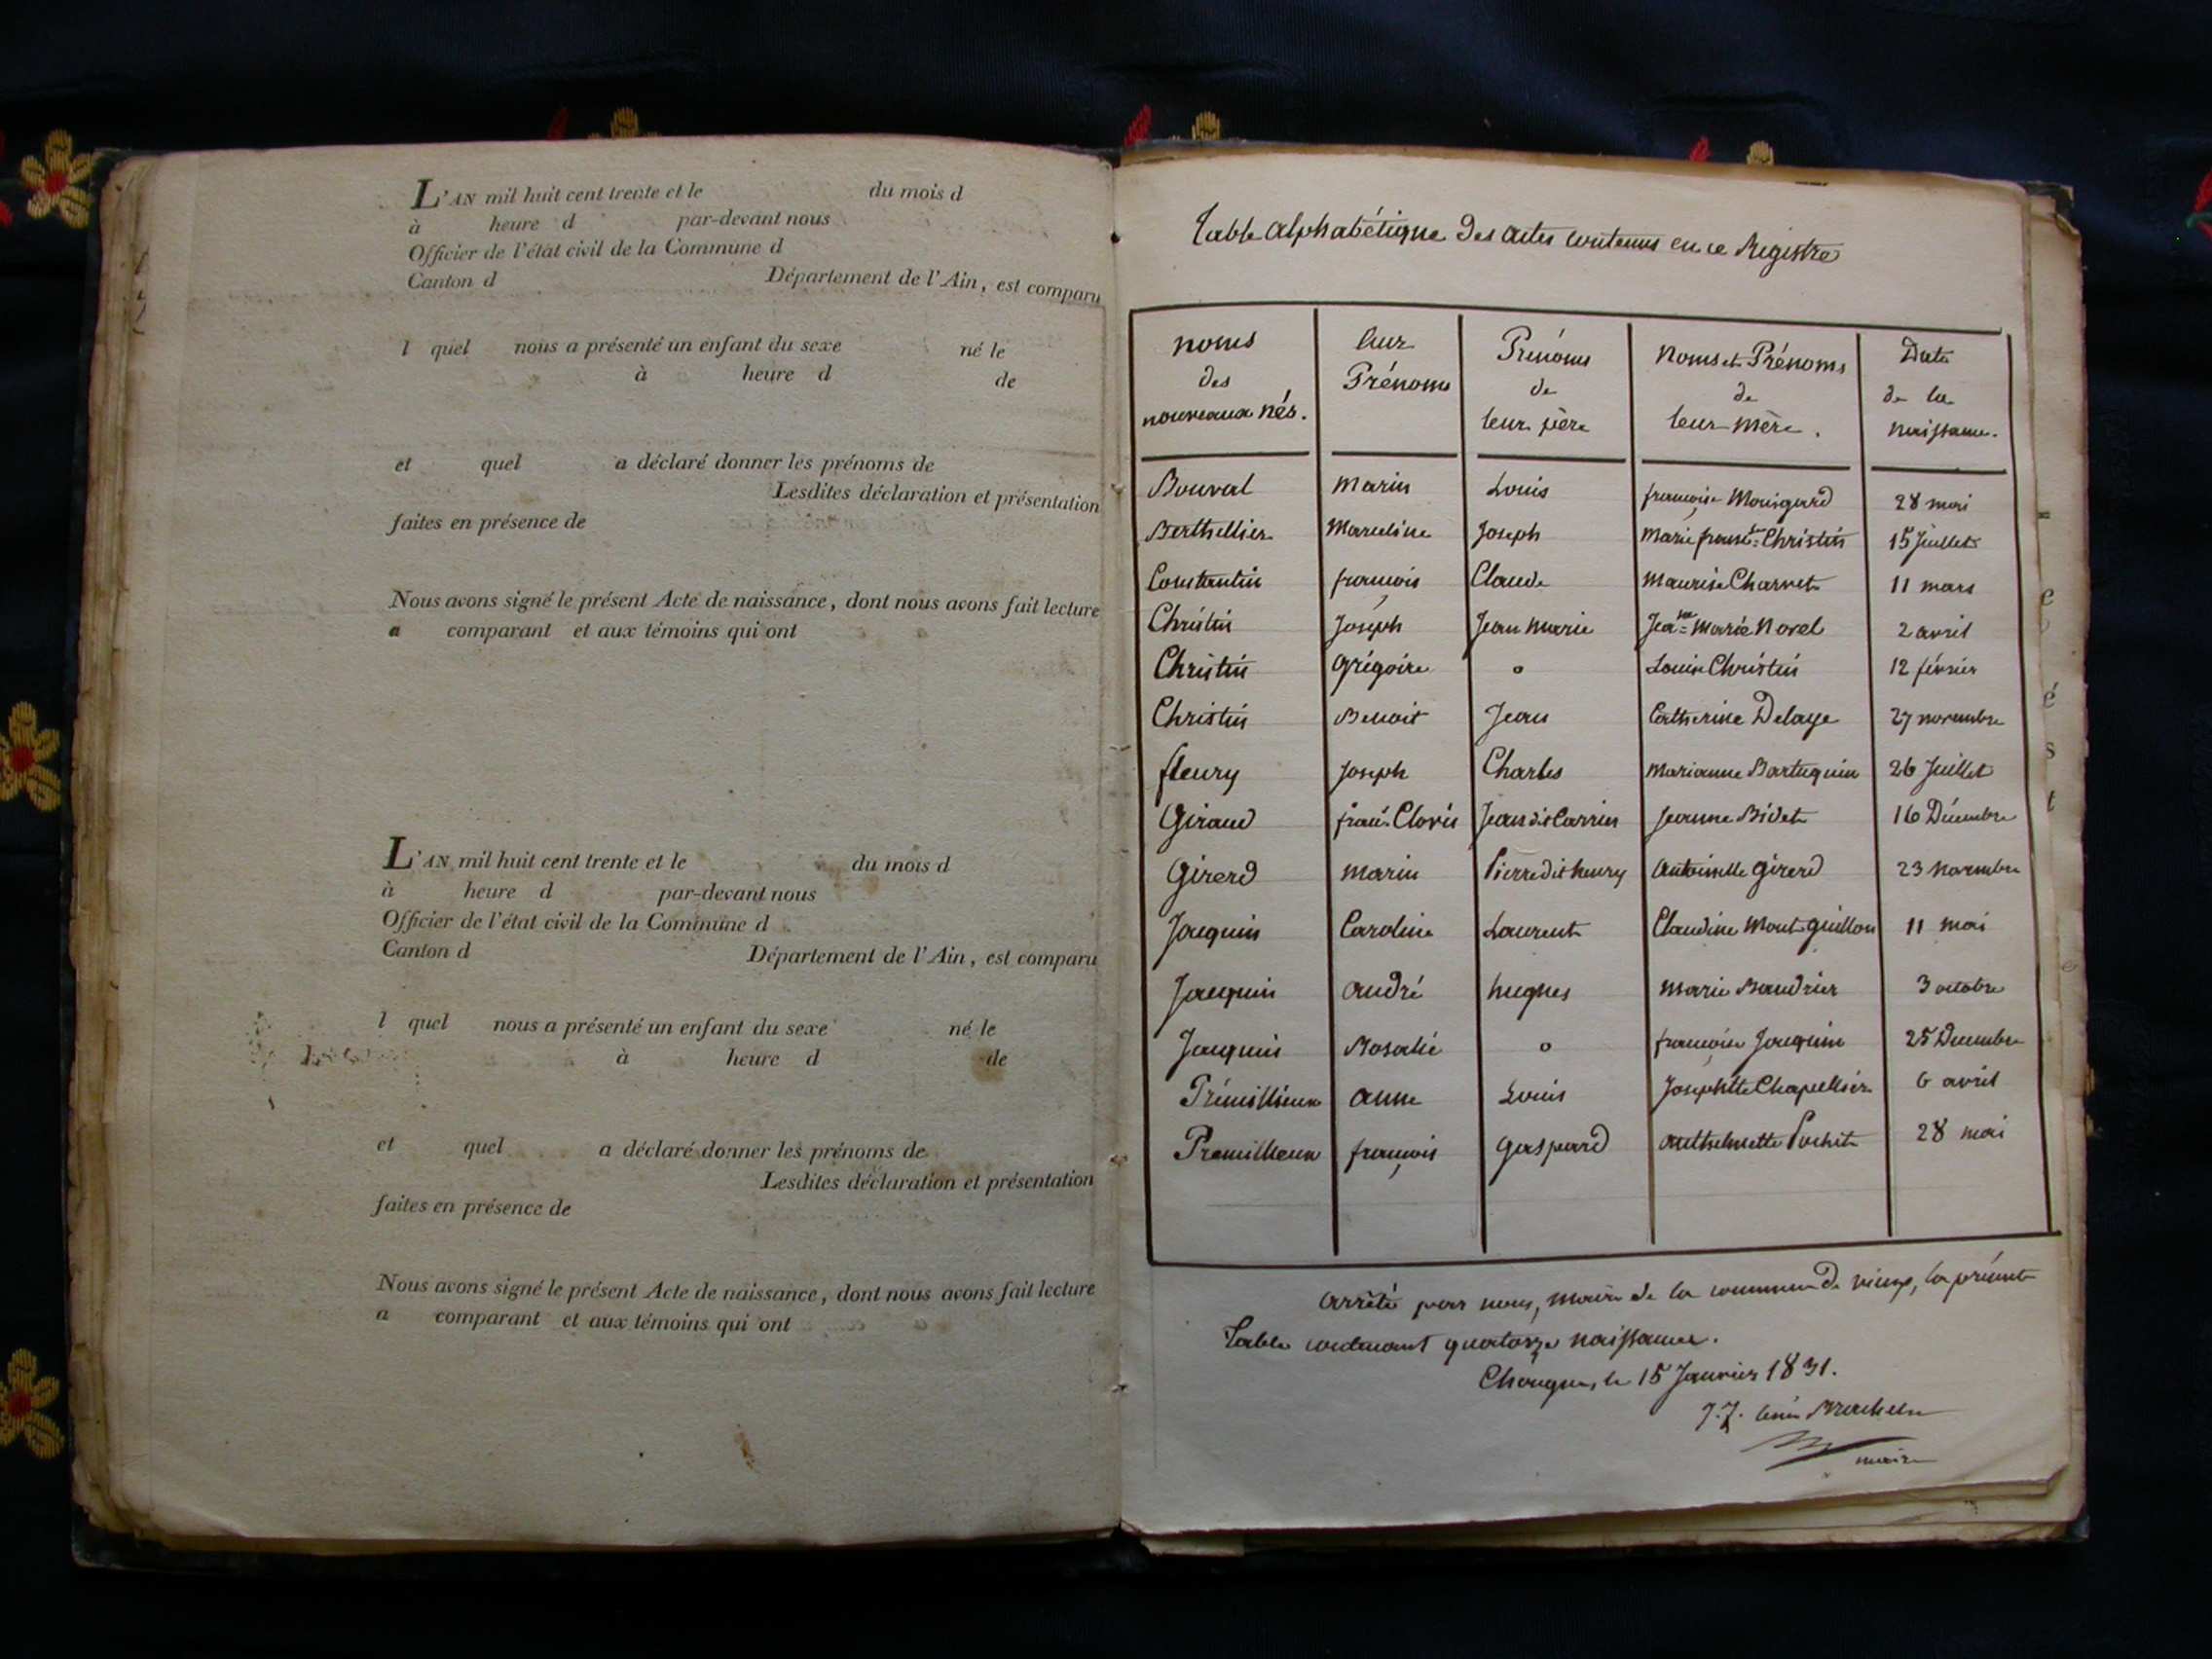 L'AN mil huit cent trente et le du mois d
à heure d par-devant nous
Officier de l'état civil de la Commune d
Canton d Département de l'Ain, est comparu
l quel nous a présenté un enfant du sexe né le
à heure d de
et quel a déclaré donner les prénoms de
Lesdites déclaration et présentation
faites en présence de
Nous avons signé le présent Acte de naissance, dont nous avons fait lecture
a comparant et aux témoins qui ont
L'AN mil huit cent trente et le du mois d
à heure d par-devant nous
Officier de l'état civil de la Commune d
Canton d Département de l'Ain, est comparu
l quel nous a présenté un enfant du sexe né le
à heure d de
et quel a déclaré donner les prénoms de
Lesdites déclaration et présentation
faites en présence de
Nous avons signé le présent Acte de naissance, dont nous avons fait lecture
a comparant et aux témoins qui ont
Table alphabétique des actes contenus en ce Registre
noms des nouveaux nés. leur Prénoms Prénoms de leur père Noms et Prénoms de leur mère. Date de la naissance.
Bouvat Marin Louis françoise 28 mai
Berthellier Marceline Joseph Marie franse Christin 15 Juillet
Constantin françois Claude Maurise Charvet 11 mars
Christin Joseph Jean Marie Jeane Marie Novel 2 avril
Christin Grégoire o Louise Christin 12 février
Christin Benoit Jean Catherine Delaye 27 novembre
fleury Joseph Charles Marianne 26 Juillet
Giraud franc. Clovis Jean dit Carrier Jeanne Bidet 16 Décembre
Girerd Marin Pierre dit henry Antoinette Girerd 23 Novembre
Jacquin Caroline Laurent Claudine Mont-guillon 11 mai
Jacquin André hugues Marie Baudrier 3 octobre
Jacquin Rosalie o françoise Jacquin 25 Decembre
Prémillieux Anne Louis Josephtte Chapellier 6 avril
Premillieux françois Gaspard Anthelmette Pochet 28 mai
Arrêté par nous, maire de la commune de vieux, la présente
Table contenant quatorze naissances.
le 15 Janvier 1831.
J. J.
maire